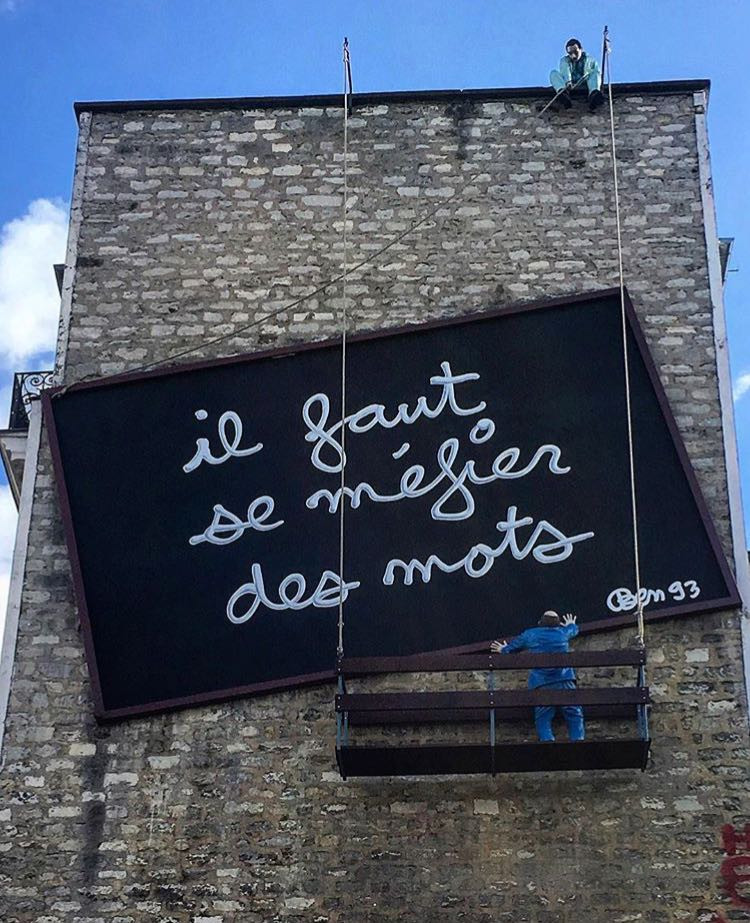 il faut
se méfier
des mots
Ben 93